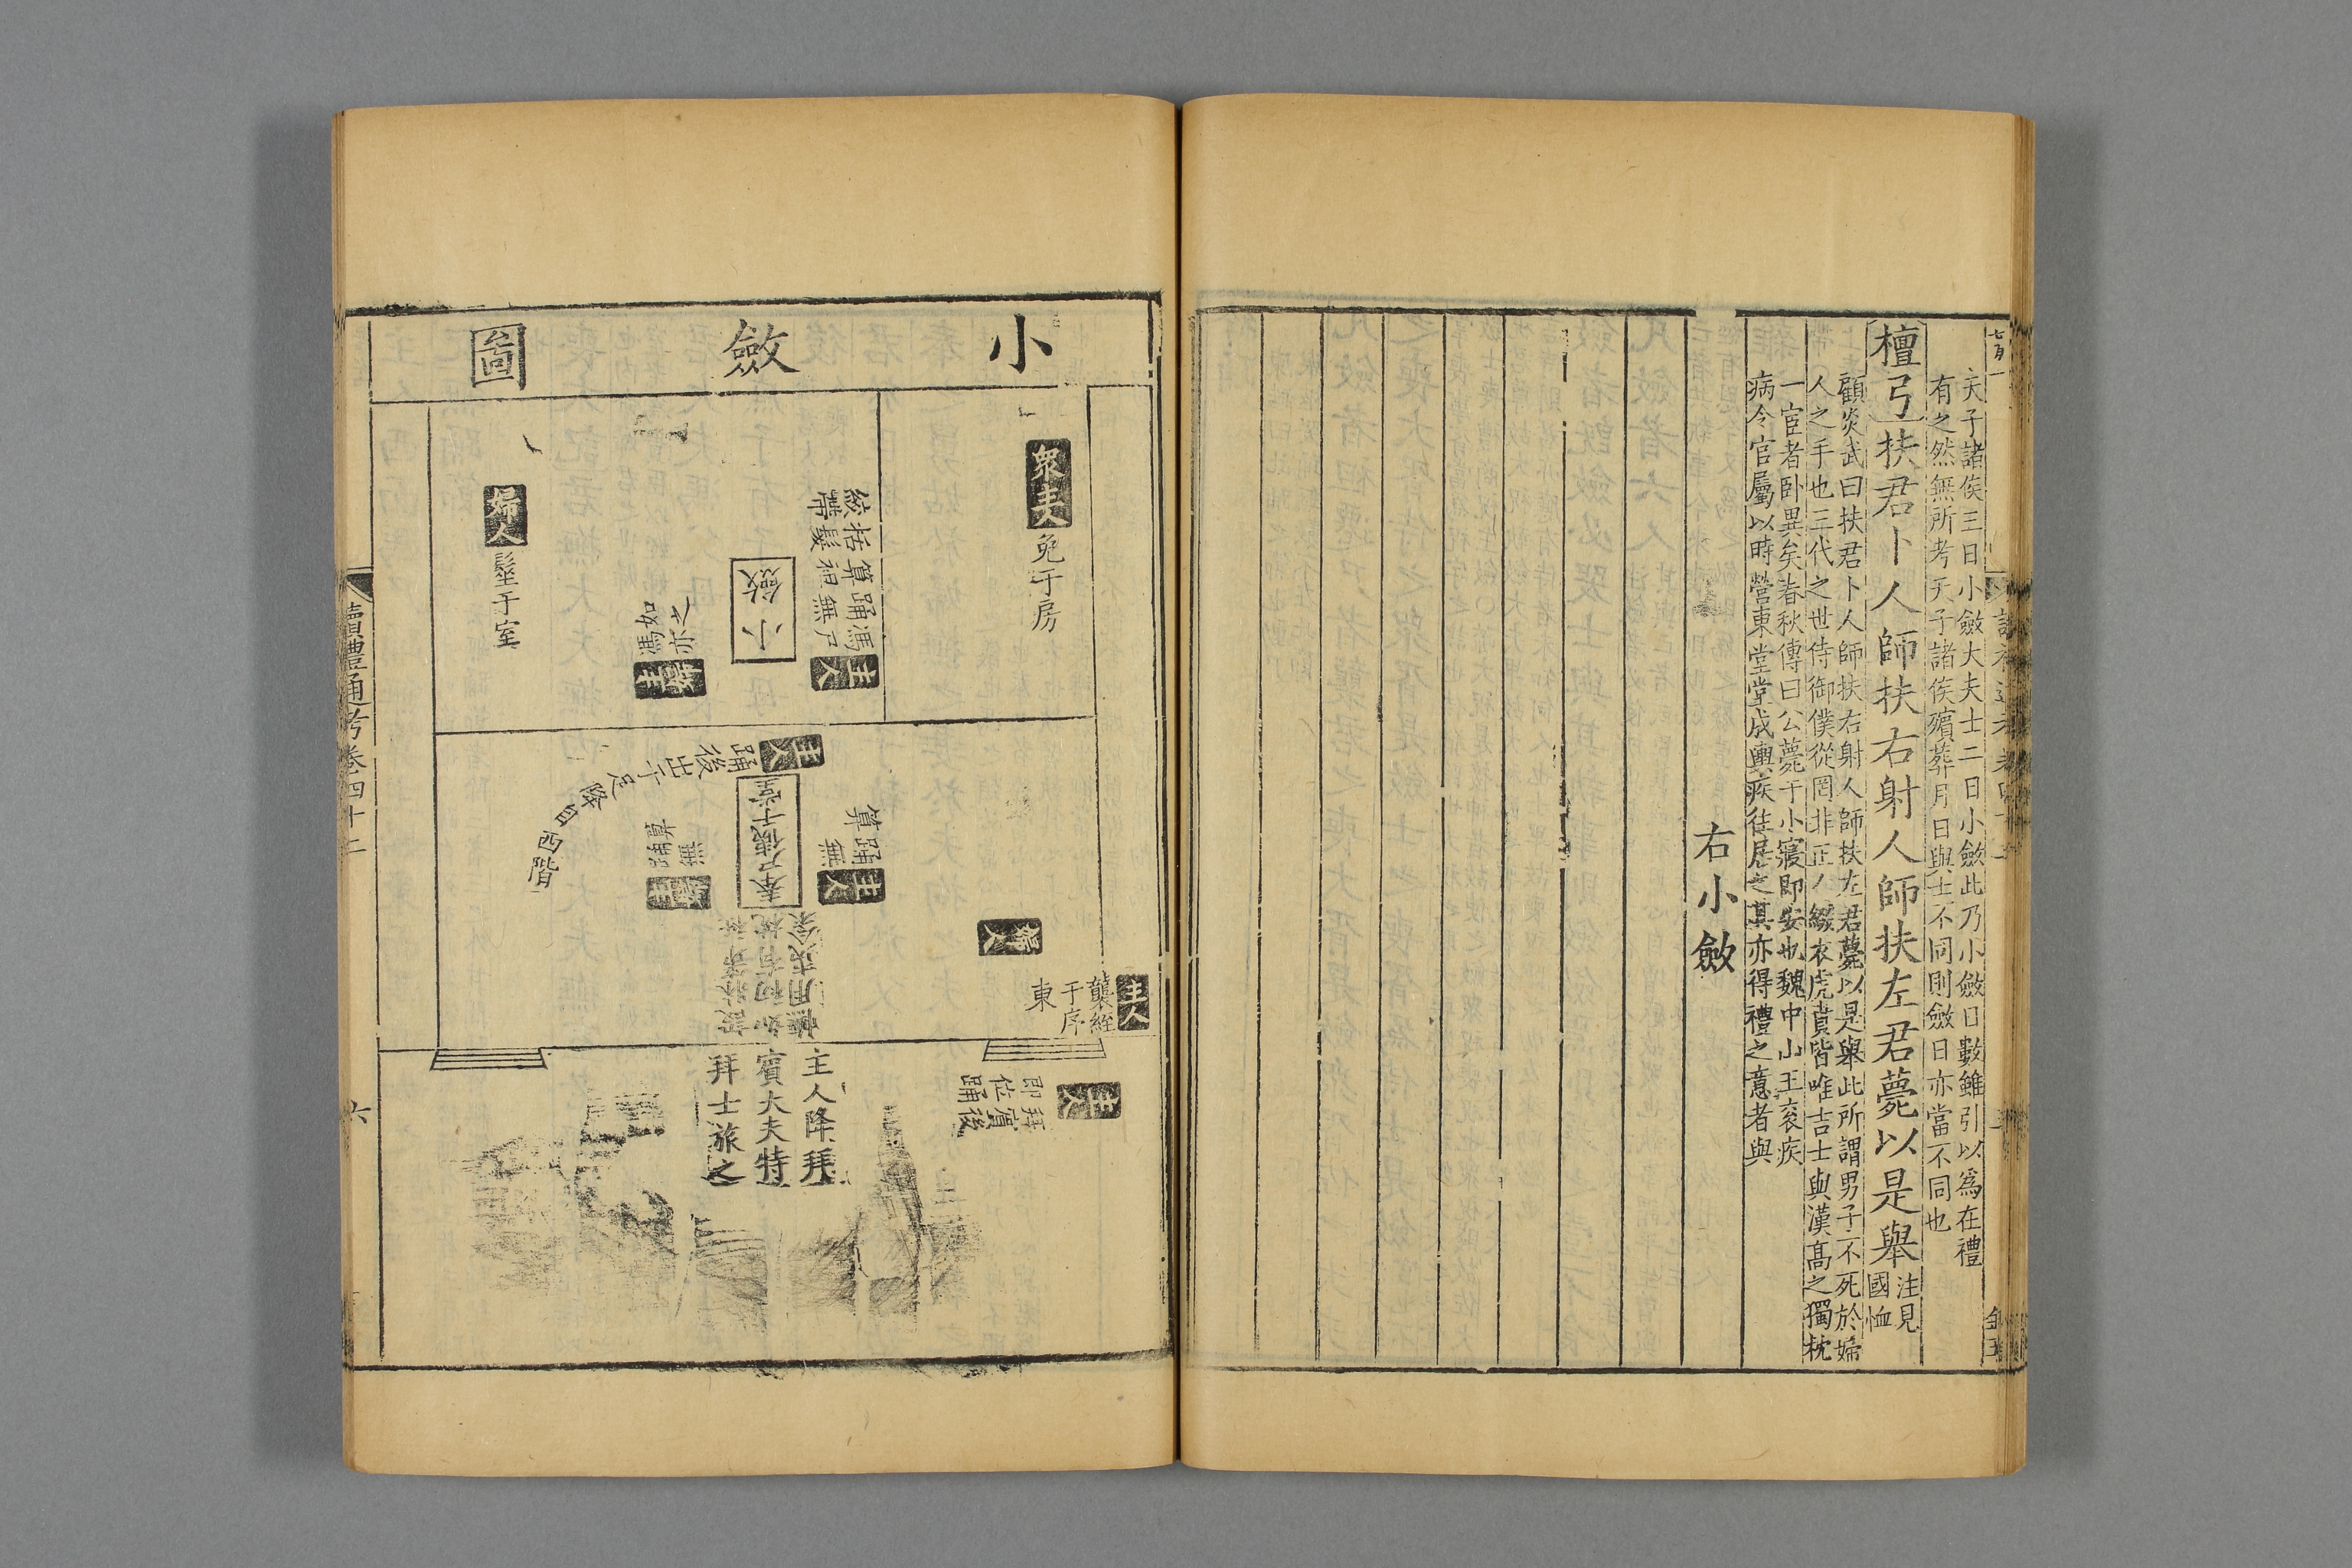 天子諸侯三日小斂大夫士二日小斂此乃小斂日數雖引以爲在禮
有之然無所考天子諸侯殯葬月日與士不同則斂日亦當不同也
檀弓扶君卜人師扶右射人師扶左君薨以是舉
注見
國恤
顧炎武曰扶君卜人師扶右射人師扶左君薨以是舉此所謂男子不死於婦
人之手也三代之世侍御僕從罔非正人綴衣虎賁皆唯吉士與漢髙之獨枕
一宦者卧異矣春秋傳曰公薨于小寢即安也魏中山王袞疾
病令官屬以時營東堂堂成輿疾往居之其亦得禮之意者與
右小斂
小斂圖
衆主人
免于房
主人
馮尸
踊無
算袒
括髮
絞帶
小斂
主婦
馮亦
如之
婦人
髽于室
主人
踊後出于足降自西階
奉尸侇于堂
主人
踊無
算
主婦
踊無
算
婦人
主人
襲絰
于序
東
主人
拜賓後
即位踊
主人降拜
賓大夫特
拜士旅之
讀禮通考卷四十二
六